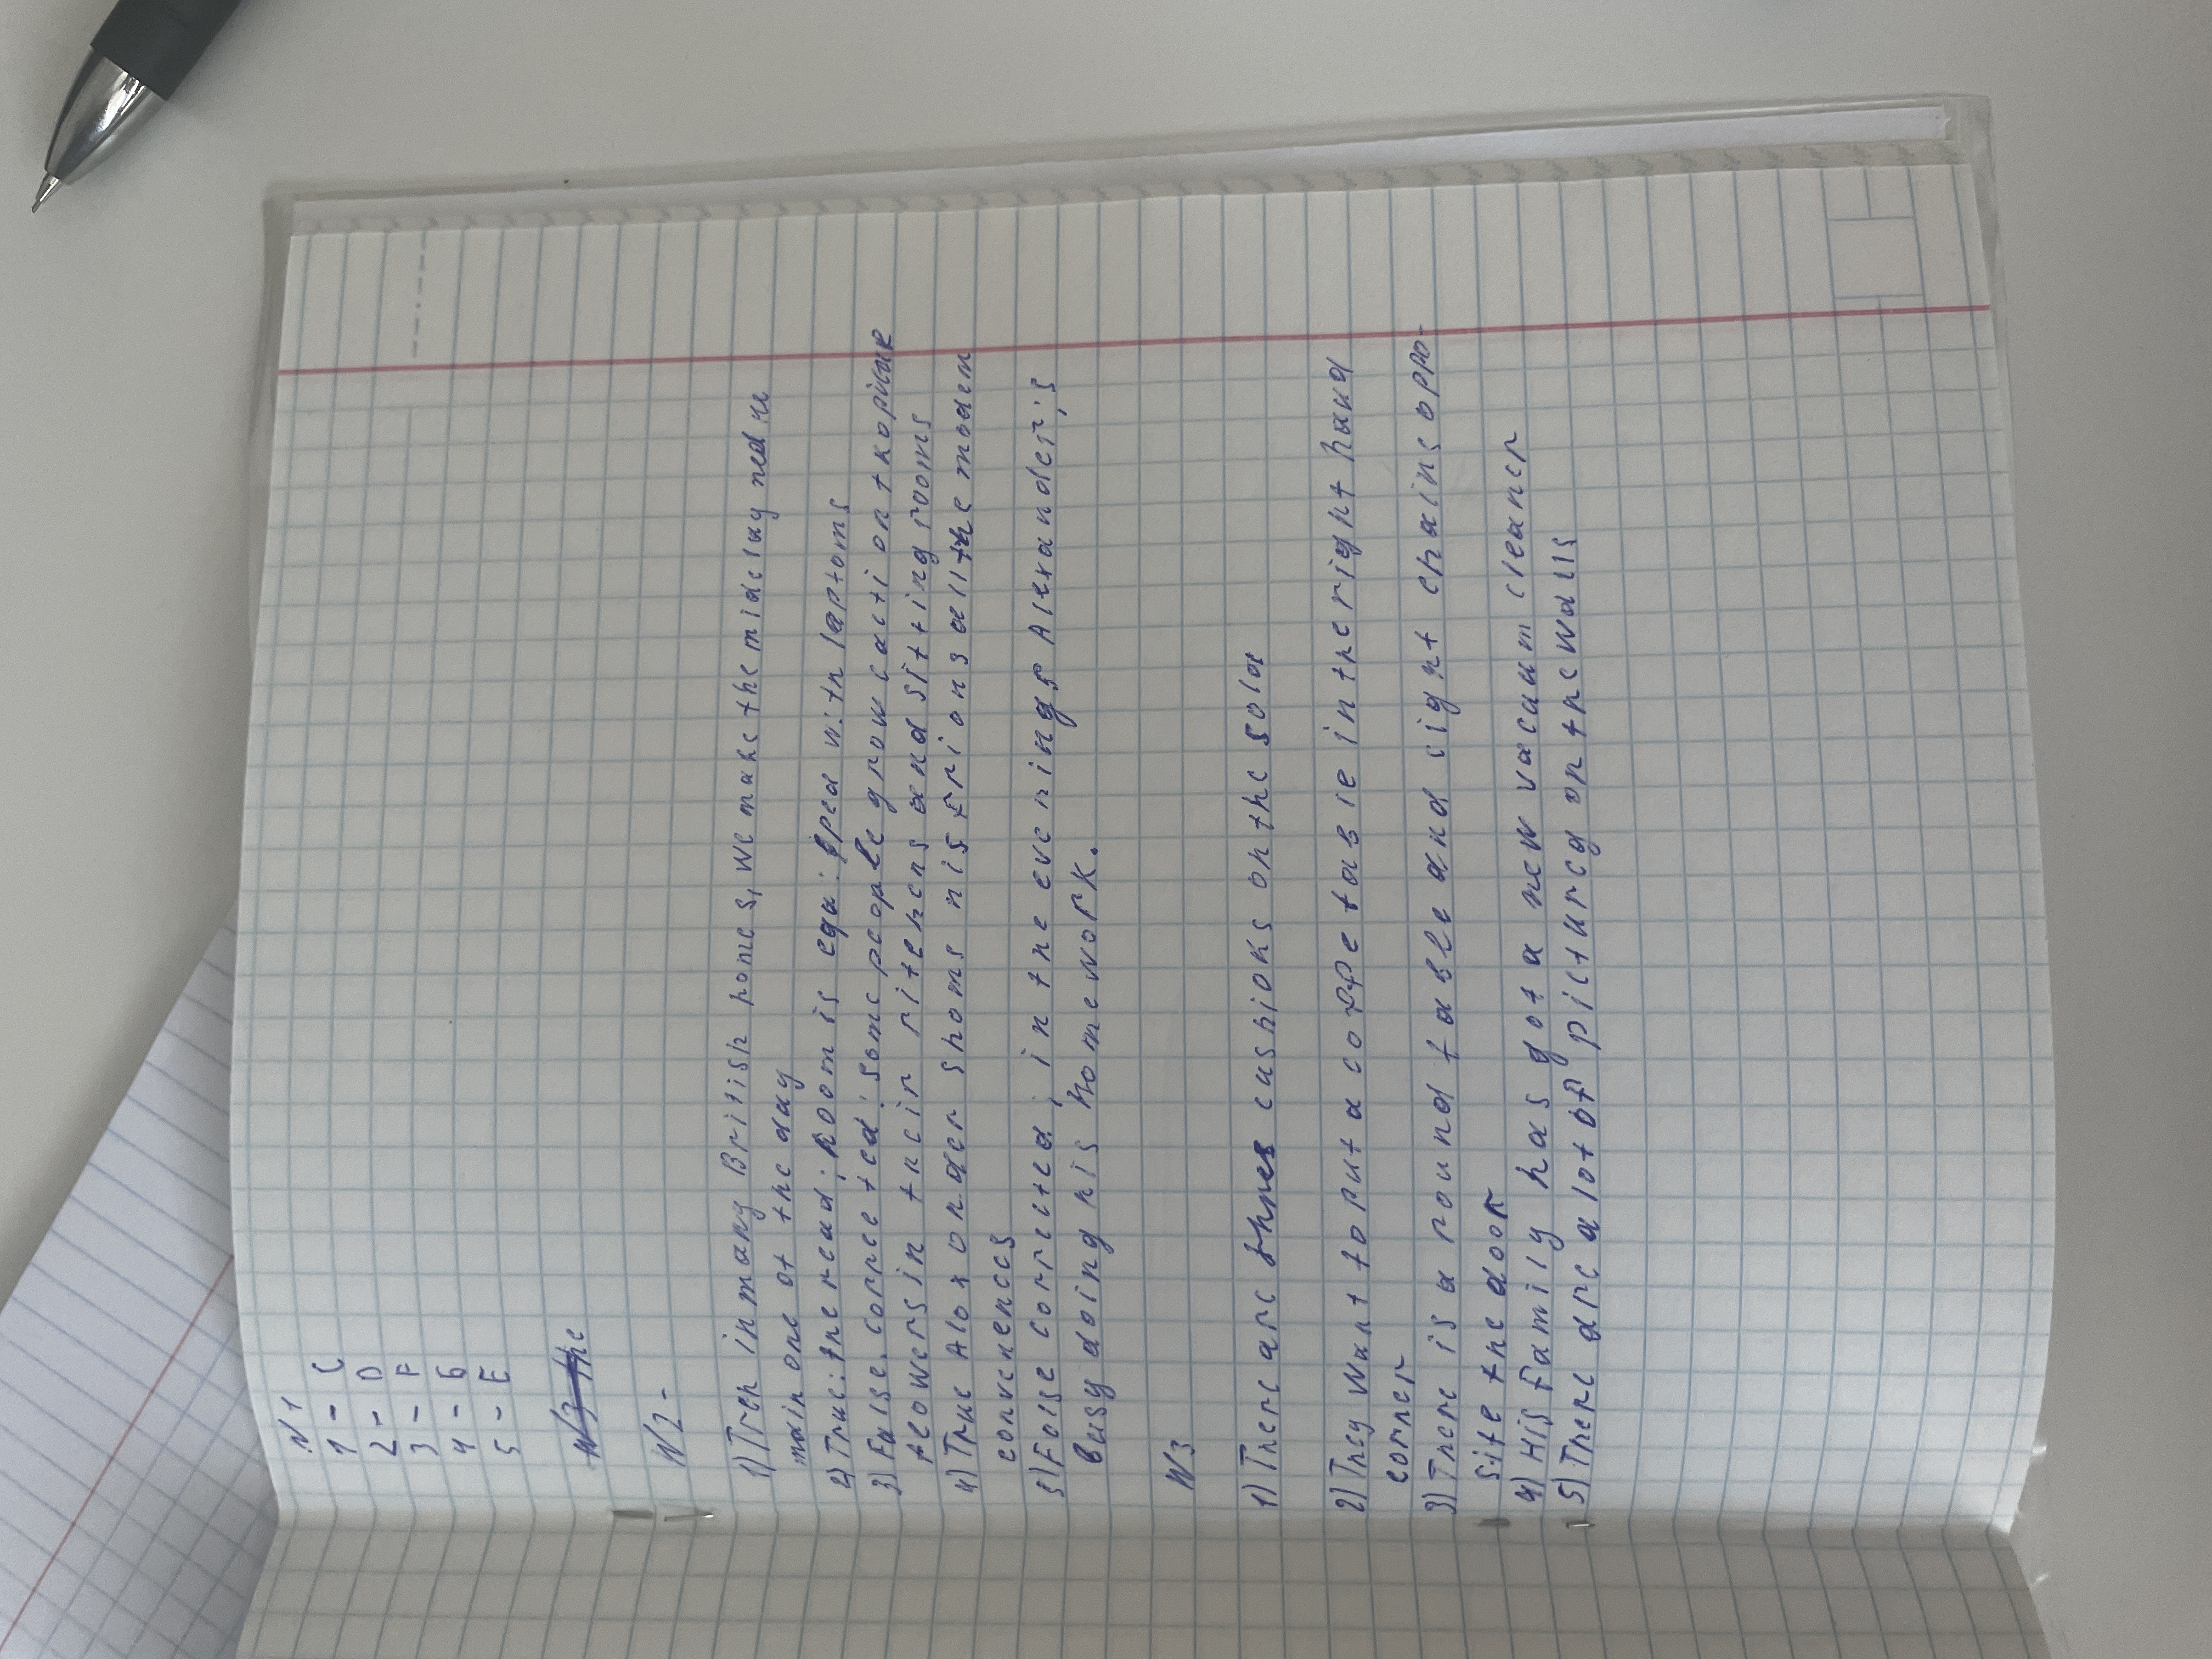 N1
1 - C
2 - D
3 - F
4 - G
5 - E
N3 the
N2 -
1) Tren in many British homes, we make the midelay
main one of the day
2) True: the read; room is equipped with laptoms
3) False. corrected: some people grow cacti or
flowers in their kitchens and sitting rooms
4) True Aloxonder shoms his frions all the modern
convenences
5) Folse corrected; in the evenings Alexander's
busy doing his homework.
N3
1) There are three cushioks on the sola
2) They want to put a coffe table in the right hand
corner
3) There is a round table and eight chairs oppo-
site the door
4) His family has got a new vacuum cleaner
5) There are a lot of picturcy on the walls